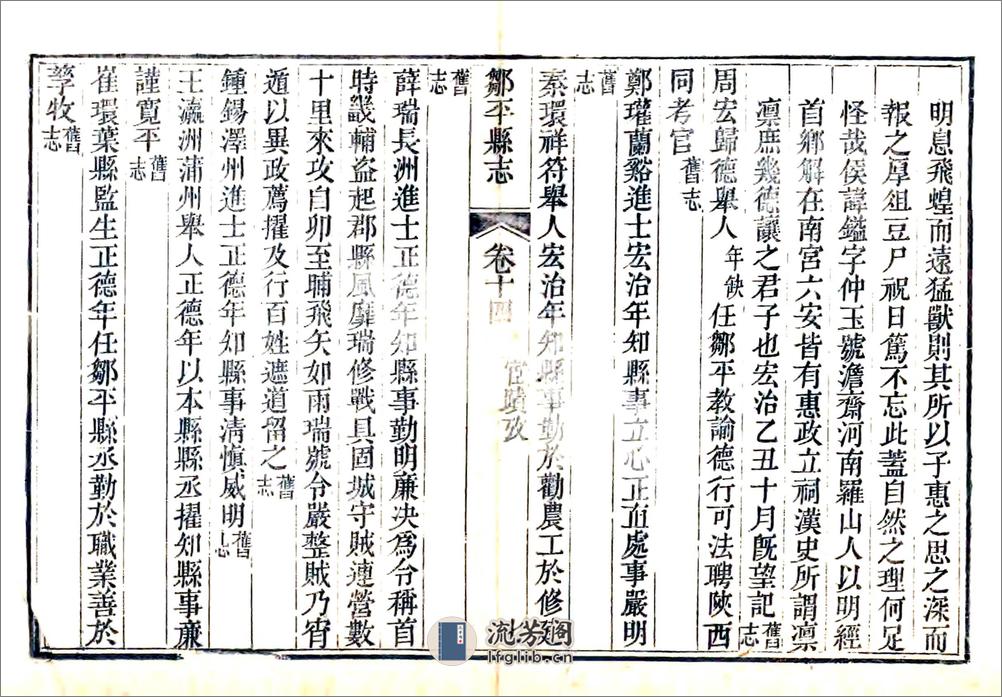 明息飛蝗而遠猛獸則其所以子惠之思之深而
報之厚俎豆尸祝日篤不忘此蓋自然之理何足
怪哉侯諱鎰字仲玉號澹齋河南羅山人以明經
首鄉解在南宮六安皆有惠政立祠漢史所謂凛
凛庶幾德讓之君子也宏治乙丑十月既望記舊志
周宏歸德舉人年缺任鄒平教諭德行可法聘陝西
同考官舊志
鄭瓘蘭谿進士宏治年知縣事立心正直處事嚴明
舊志
秦環祥符舉人宏治年知縣事勤於勸農工於修
鄒平縣志 卷十四 宦蹟攷
舊志
薛瑞長洲進士正德年知縣事勤明廉决為令稱首
時畿輔盜起郡縣風靡瑞修戰具固城守賊連營數
十里來攻自卯至晡飛矢如雨瑞號令嚴整賊乃宵
遁以異政薦擢及行百姓遮道留之舊志
鍾錫澤州進士正德年知縣事清慎威明舊志
王瀛洲蒲州舉人正德年以本縣縣丞擢知縣事廉
謹寬平舊志
崔環葉縣監生正德年任鄒平縣丞勤於職業善於
孳牧舊志
流芳閣
lfglib.cn